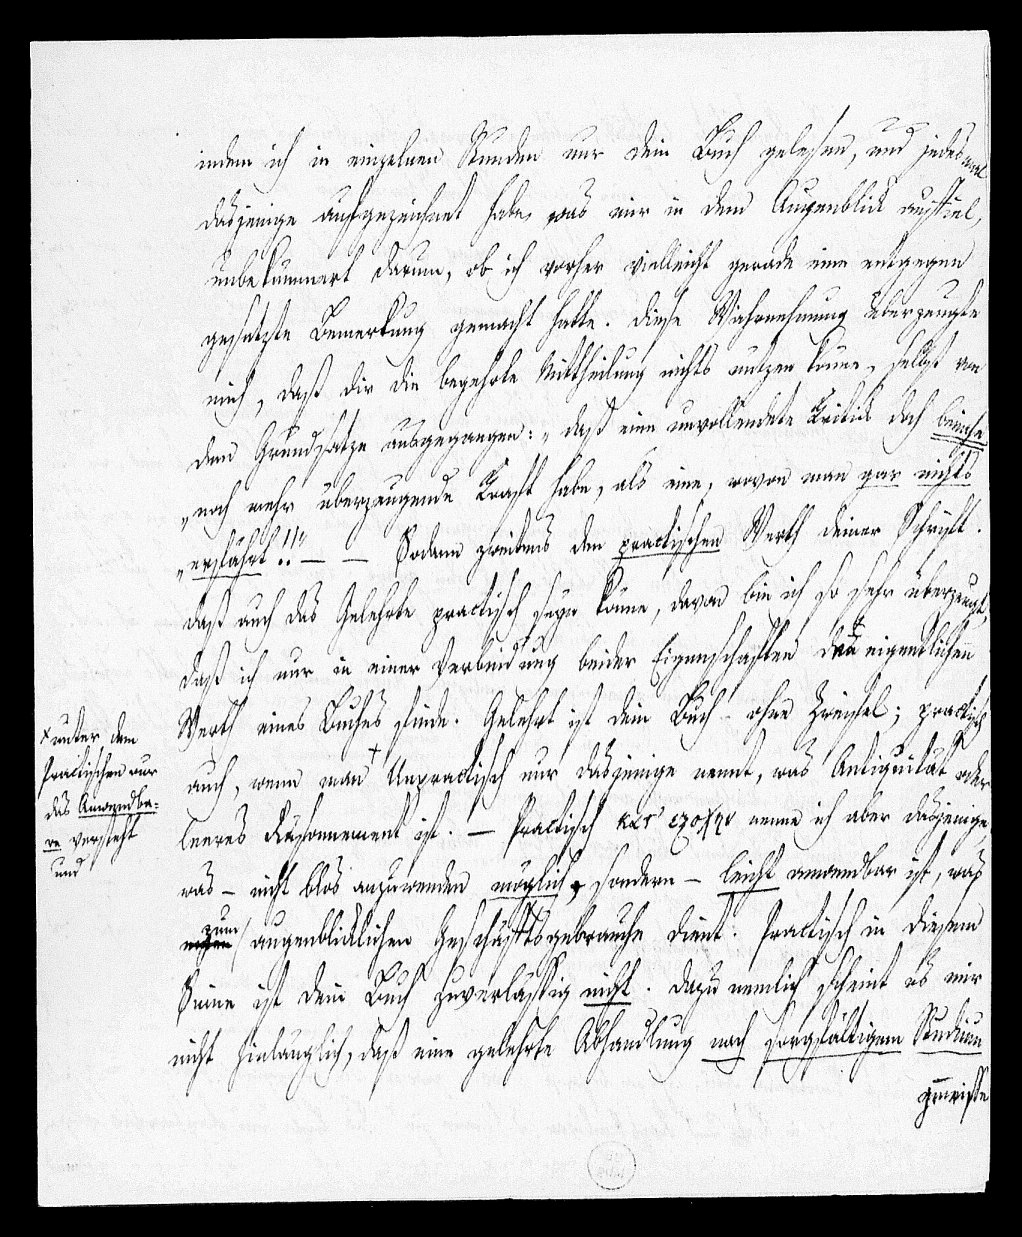 indem ich in einzelnen Stunden nur dein Buch gelesen, und jedesmal
dasjenige aufgezeichnet habe, was mir in dem Augenblick auffiel,
unbekümmert darum, ob ich vorher vielleicht gerade eine entgegen
gesetzte Bemerkung gemacht hatte. Diese Wahrnehmung überzeugte
mich, daß dir die begehrte Mittheilung nichts nutzen könne, selbst von
dem Grundsatze ausgegangen: „daß eine unvollendete Kritick doch beinahe
„noch mehr überzeugende Kraft habe, als eine, wovon man gar nichts
„erfährt"!! — — Sodann zweitens den practischen Werth deiner Schrift.
Daß auch das Gelehrte practisch seyn könne, davon bin ich so sehr überzeugt,
daß ich nur in einer Verbindung beider Eigenschaften den eigentlichen
Werth eines Buches finde. Gelehrt ist dein Buch ohne Zweifel; practisch
auch, wenn man + Unpractisch nur dasjenige nennt, was Antiquität oder
leeres Räsonnement ist. — Practisch κατ εξοχην nenne ich aber dasjenige,
was — nicht blos anzuwenden möglich, sondern — leicht anwendbar ist, was
zum augenblicklichen Geschäftsgebrauche dient. Practisch in diesem
Sinne ist dein Buch zuverlässig nicht. Dazu nemlich scheint es mir
nicht hinlänglich, daß eine gelehrte Abhandlung nach sorgfältigem Studium
gewisse
+ unter dem
Practischen nur
das Anwendba-
re versteht
und